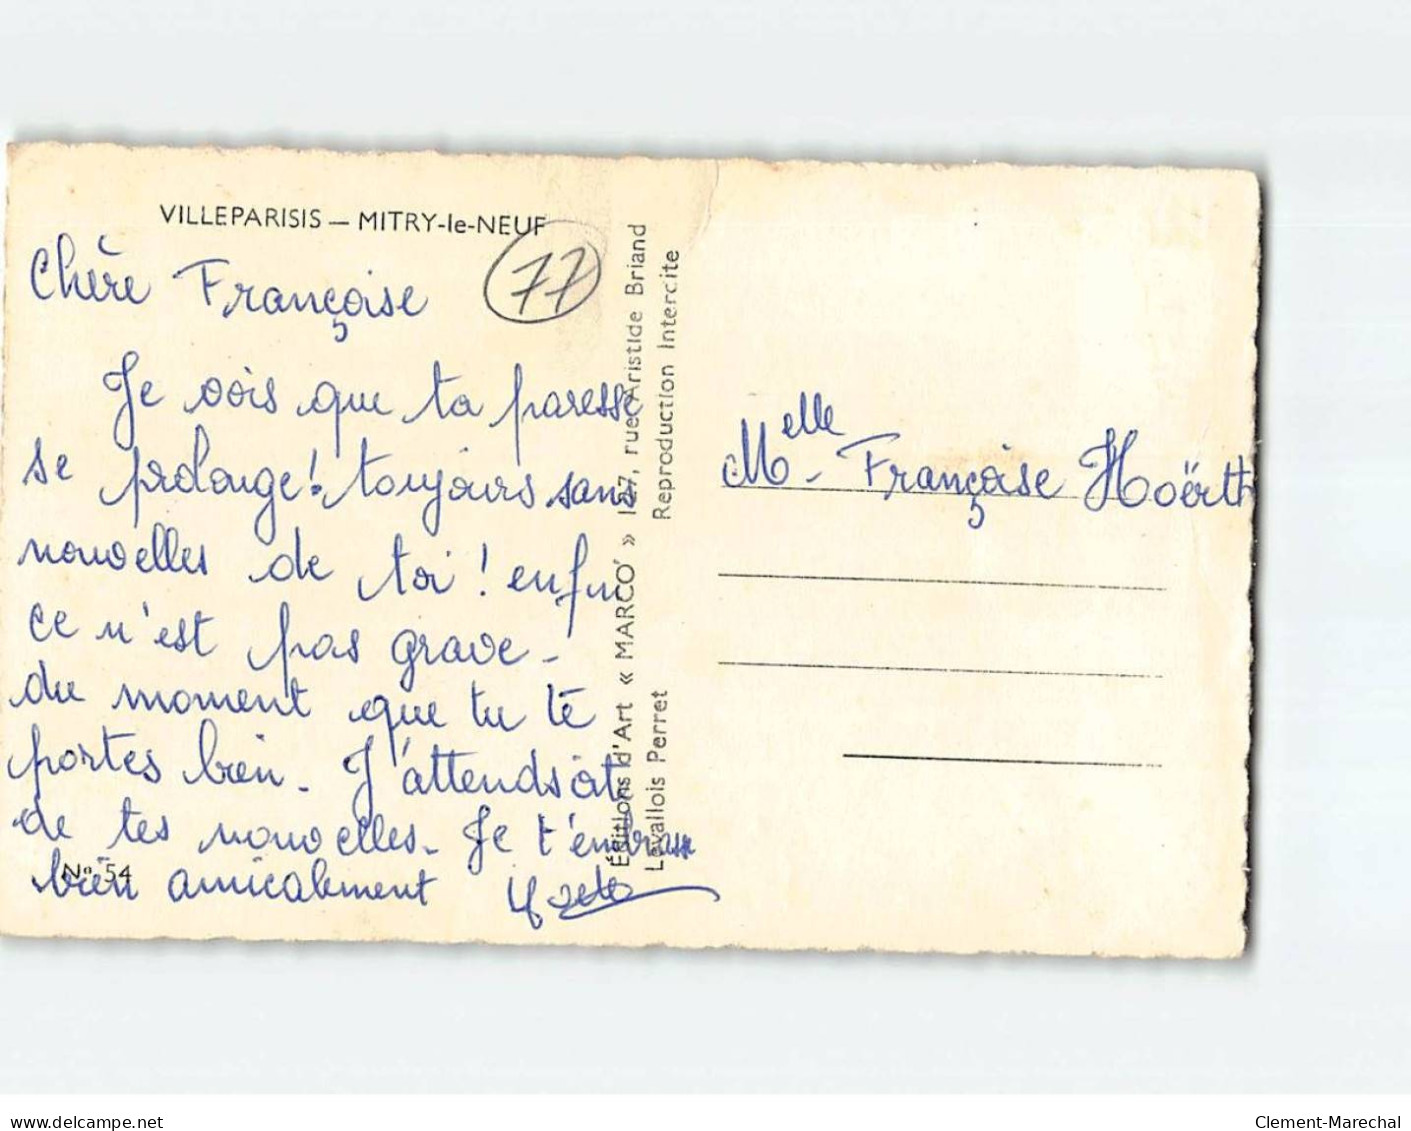 VILLEPARISIS — MITRY-le-NEUF
77
Chère Françoise
Je vois que ta paresse
se prolonge! toujours sans
nouvelles de toi! enfin
ce n'est pas grave -
du moment que tu te
portes bien. J'attends
de tes nouvelles. Je t'embrasse
bien amicalement
N° 54
Éditions d'Art « MARCO » 127, rue Aristide Briand
Levallois Perret Reproduction Intercite
Melle Françoise Hoërth
www.delcampe.net
Clement-Marechal